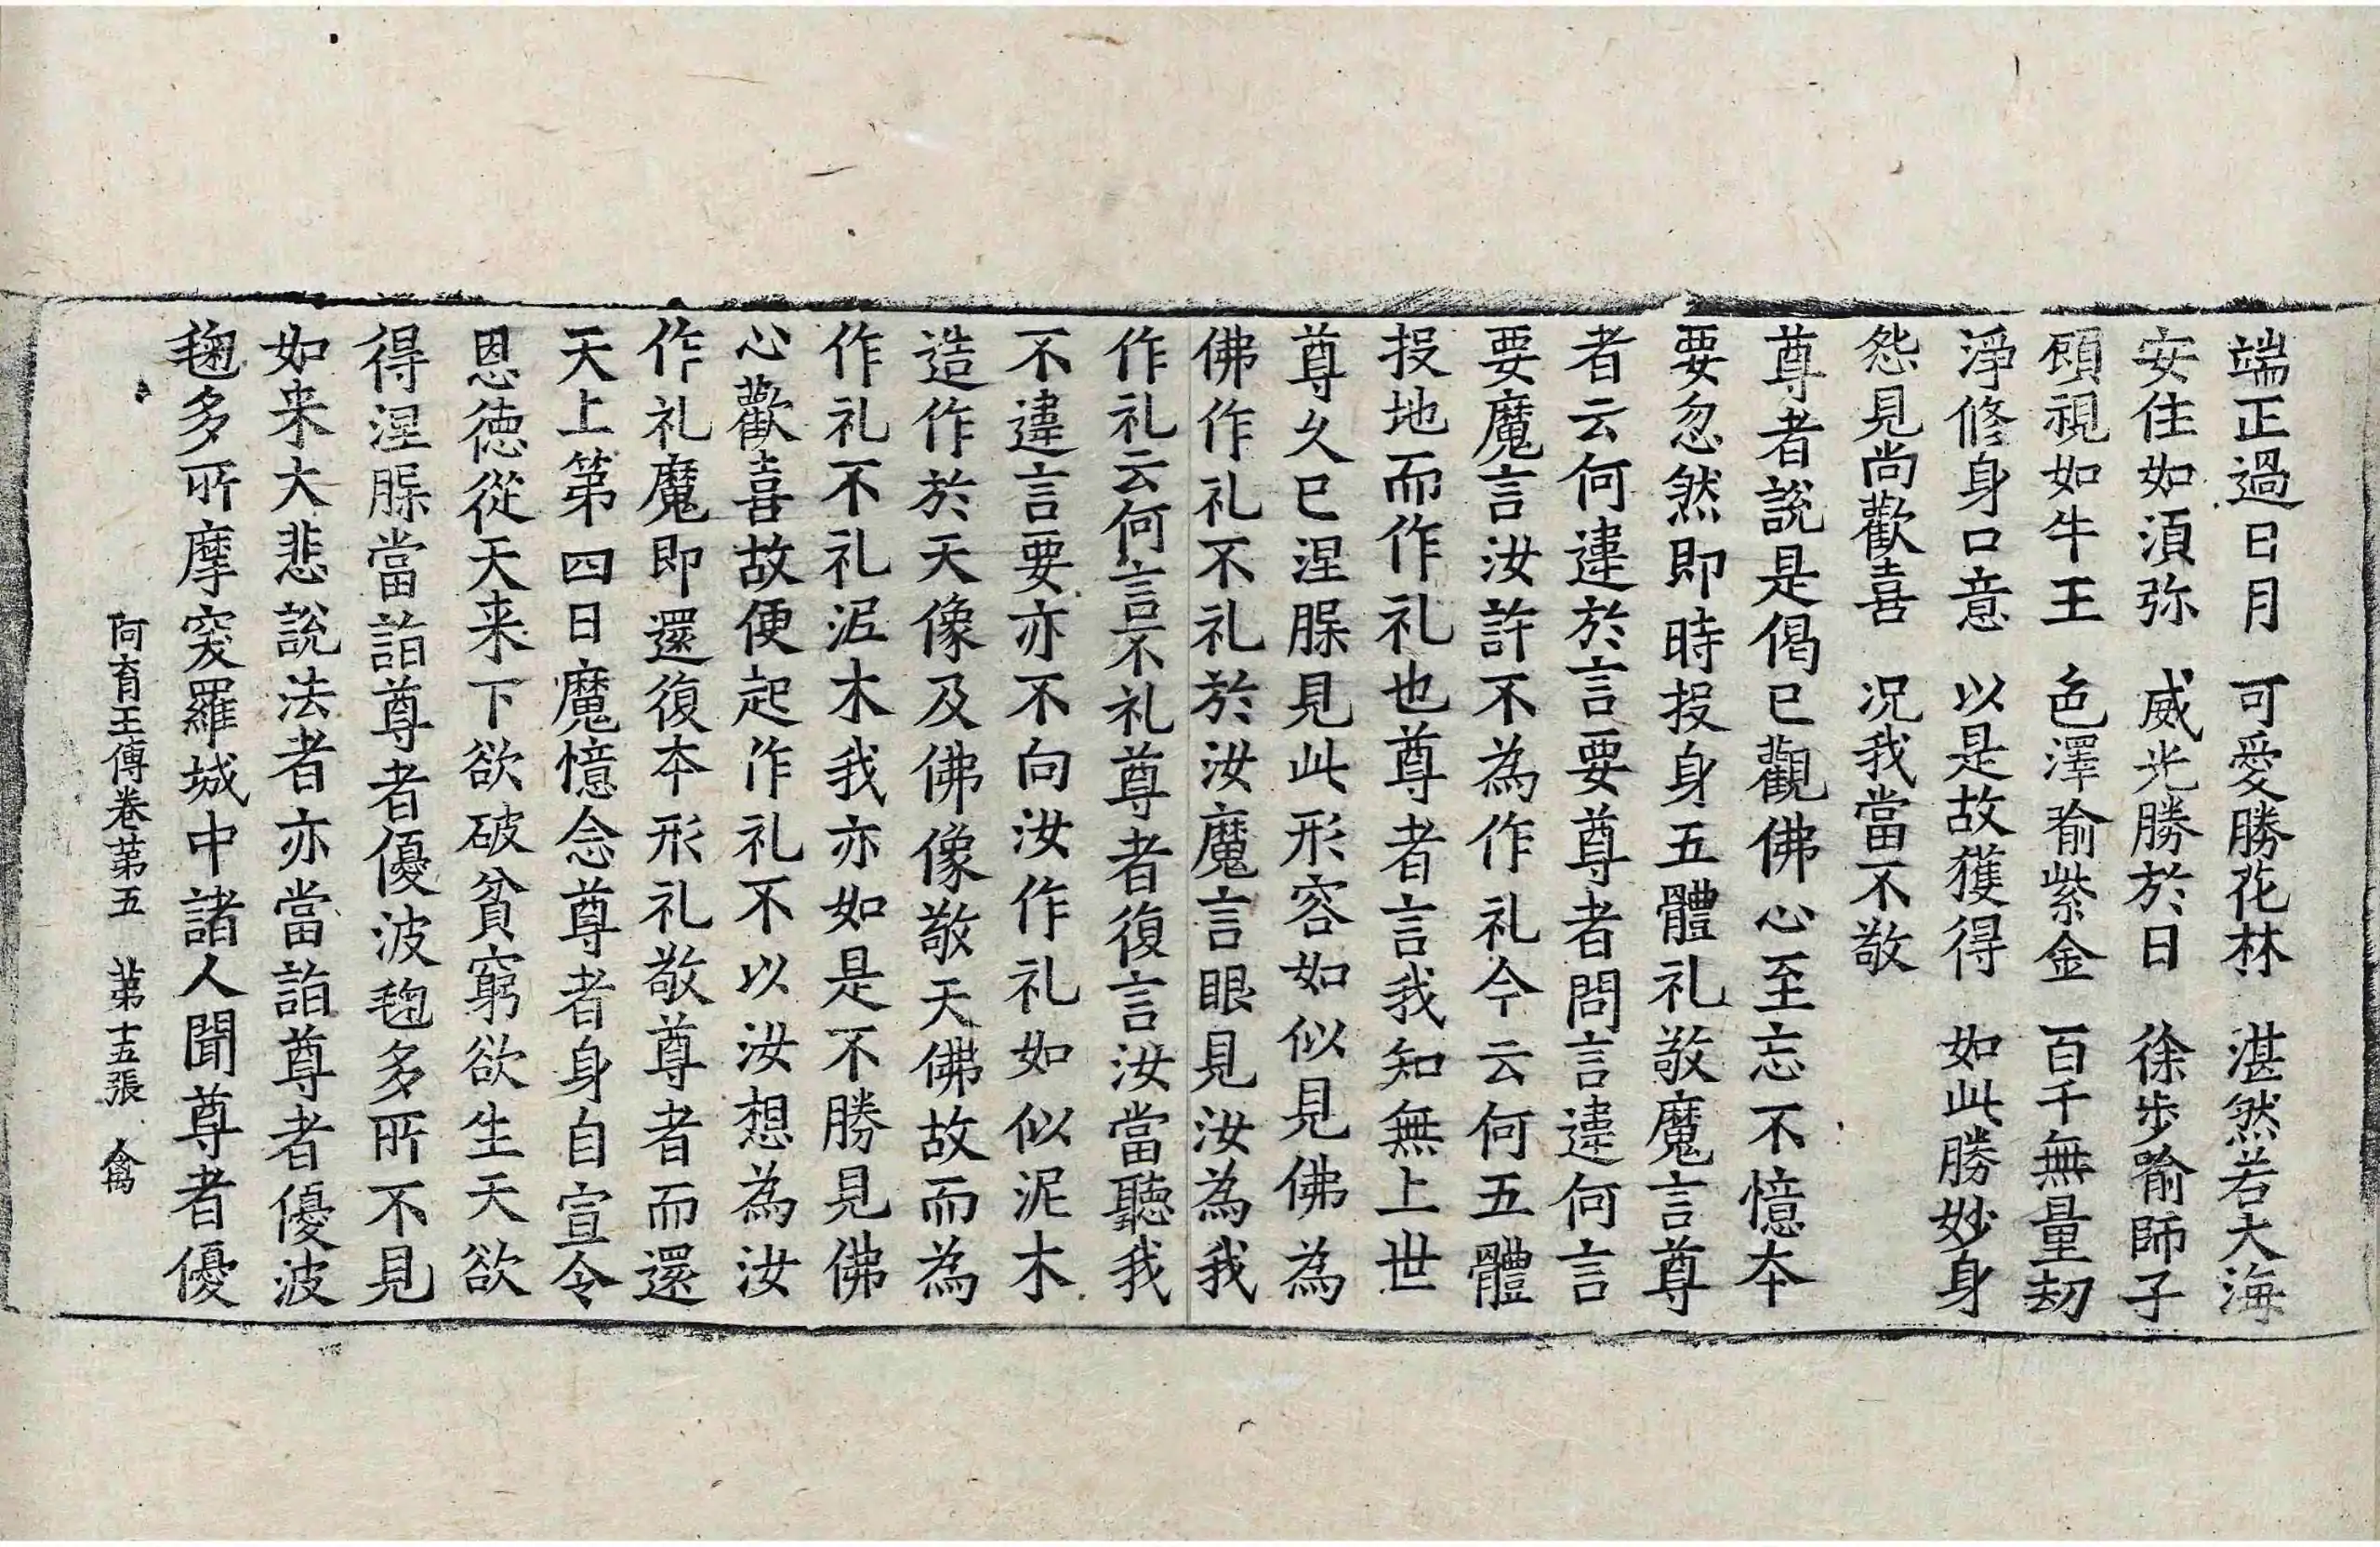 端正過日月　可愛勝花林　湛然若大海
安住如湏弥　威光勝於日　徐步喻師子
頋視如牛王　色澤喻紫金　百千無量刼
淨修身口意　以是故獲得　如此勝妙身
怨見尚歡喜　況我當不敬
尊者說是偈已觀佛心至忘不憶本
要忽然即時投身五體礼敬魔言尊
者云何違於言要尊者問言違何言
要魔言汝許不為作礼今云何五體
投地而作礼也尊者言我知無上世
尊久已涅槃見此形容如似見佛為
佛作礼不礼於汝魔言眼見汝為我
作礼云何言不礼尊者復言汝當聽我
不違言要亦不向汝作礼如似泥木
造作於天像及佛像敬天佛故而為
作礼不礼泥木我亦如是不勝見佛
心歡喜故便起作礼不以汝想為汝
作礼魔即還復本形礼敬尊者而還
天上第四日魔憶念尊者身自宣令
恩徳從天来下欲破貧窮欲生天欲
得涅槃當詣尊者優波毱多所不見
如来大悲說法者亦當詣尊者優波
毱多所摩突羅城中諸人聞尊者優
阿育王傳卷第五　第十五張　禽